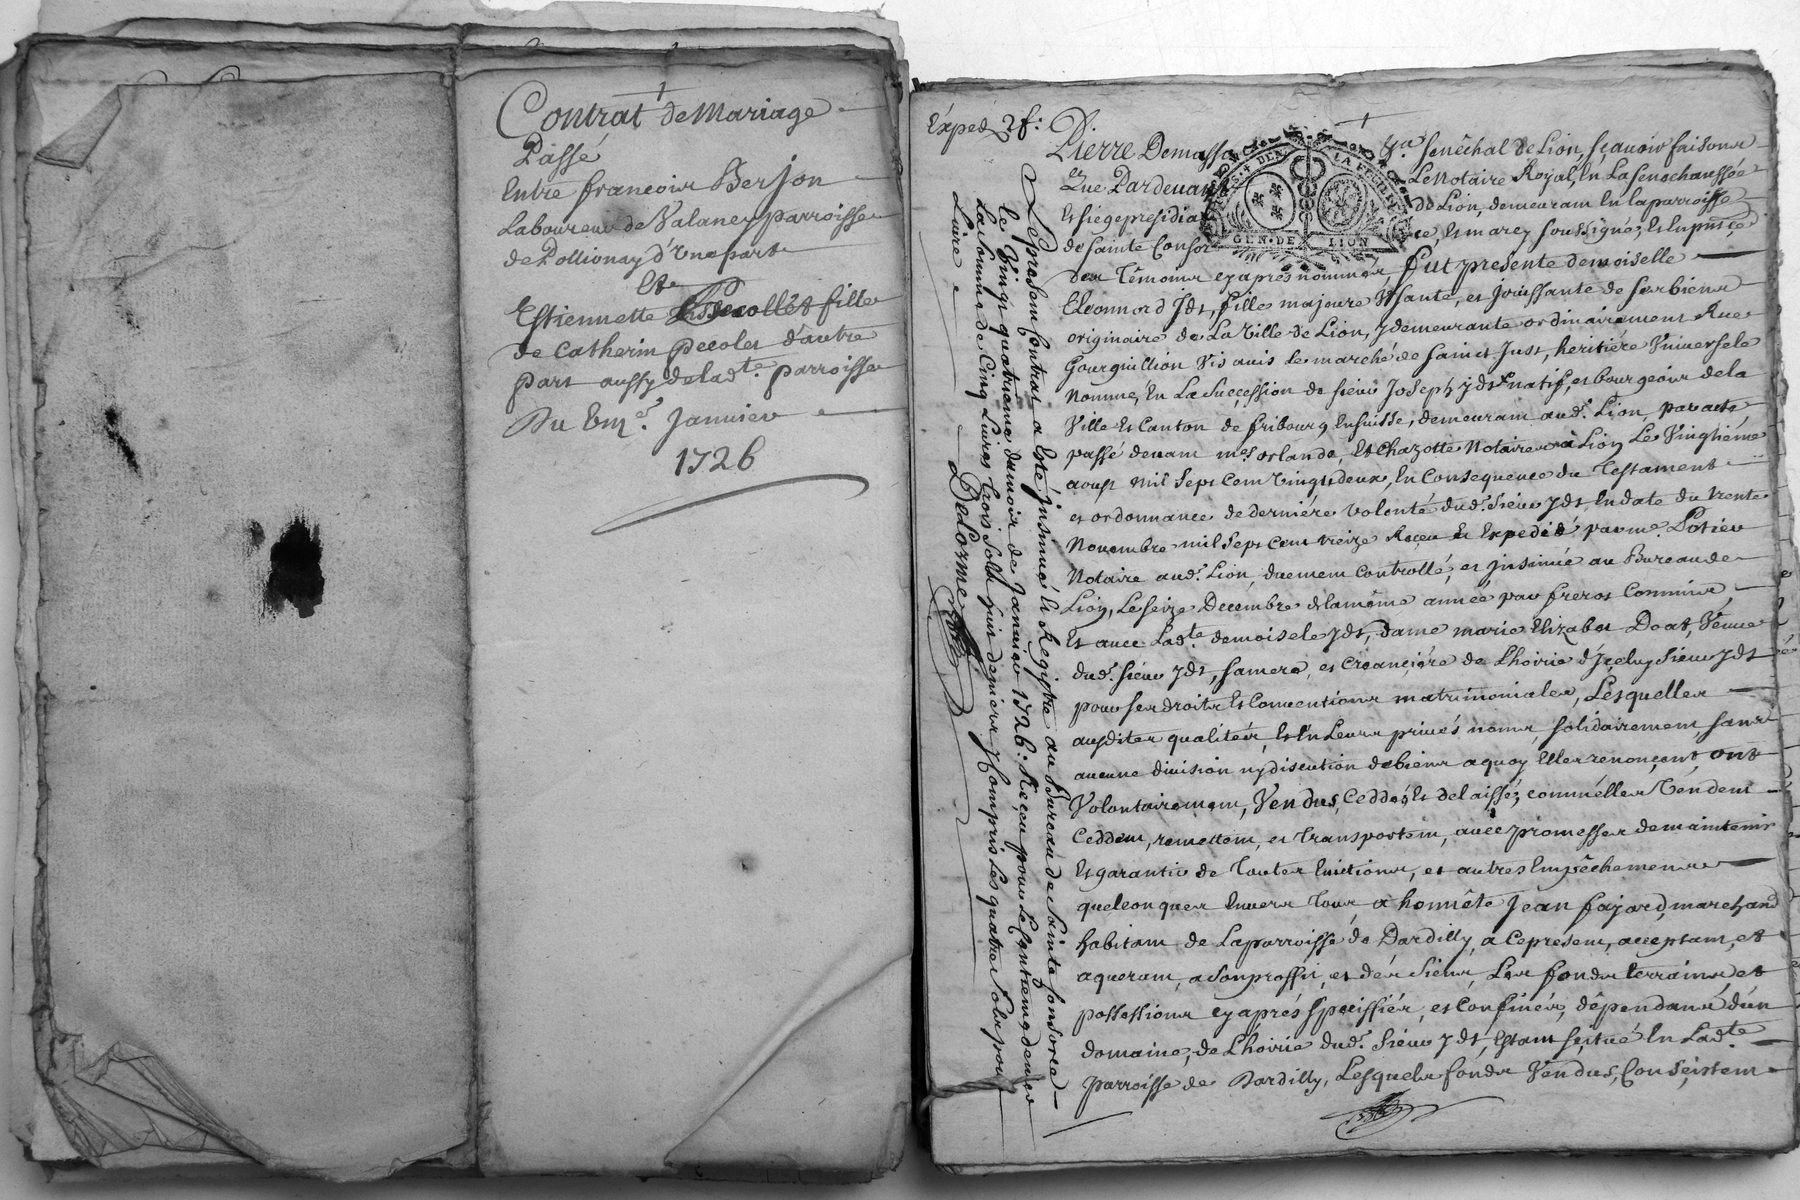 Contrat de Mariage
Passé
Entre françois Berjon
Laboureur de Valaney parroisse
de Pollionay d'Une part
Et
Estiennette Peccollet fille
de Catherin Pecolet d'autre
part aussy de lad.te parroisse
Du janvier
1726
Expedé 2 f:
Pierre Demasso Senêchal de Lion, sçavoir faisons
Que Pardevant Le Notaire Royal, En La senechaussée
Et siege presidia de Lion, demeurant En la parroisse
de Sainte Consor ce, Et marcy soussigné; et En pnce
GEN. DE LION
des Têmoins cy après nommés fut presente demoiselle
Eleonnord Yds, fille majeure Usante, et Jouissante de ses biens
originaire de La Ville de Lion, y demeurante ordinairement Rue
Gourguillion Vis avis le marché de Saint Just, heritiére Universele
Nommé, En La Succession de sieur Joseph yds natif, et bourgeois de la
Ville Et Canton de fribourg En suisse, demeurant aud. Lion, par acte
passé devant mes. orlande, Et Chazotte Notaires à Lion Le Vingtiéme
aoust mil sept cent vingt deux, En Consequence du Testament
et ordonnance de derniére volonté dud. Sieur yds, En date du trente
Novembre mil sept cent treize Reçeu et Expedié par me. Potier
Notaire aud. Lion, duement Controllé, et jnsinué au Bureau de
Lion, Le seize Decembre de la même année par freros Commis,
Et avec Lad.te demoisele yds, dame marie Elizabet Doat, Veuve
dud. Sieur yds, sa mere, et creanciére de L'hoirie d'jceluy Sieur yds
pour ses droits Et Conventions matrimoniales, Lesquelles
ausdites qualités, Et En Leurs privés noms, solidairement, sans
aucune division ny discution de biens a quoy Elles renonçent, ont
Volontairement, Vendus, Ceddés, Et delaissé, comme elles Vendent
Ceddent, remettent, et transportent, avec promesses de maintenir
Et garantir de toutes Evictions, et autres Empêchements
quelconques Envers tous a honnête Jean fayard, marchand
habitant de La parroisse de Dardilly, a ce present, acceptant, et
aquerant, a son proffit, et des siens, Les fonds terrains, et
possessions cy après specifliés, et Confinés, dépendants d'un
domaine, de L'hoirie dud. Sieur yds, Estant scitué En Lad.te
parroisse de Dardilly, Lesquels fonds Vendus, Consistent
Le present Contrat a Esté jnsinué Et Registré au Bureau de Sainte Consorce
le Vingt quatrieme du mois de Janvier 1726: Reçeu pour Le Centieme denier
La somme de Cinq Livres trois sols huit deniers y Compris Les quatre sols pour
Livre
DeLorme